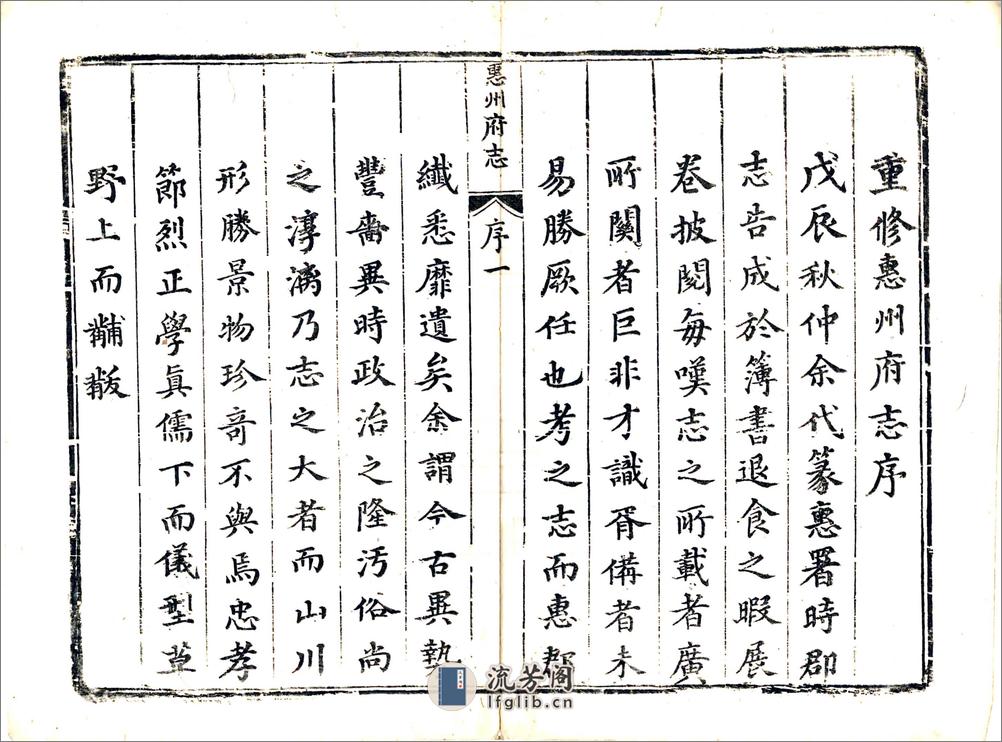 重修惠州府志序
戊辰秋仲余代篆惠署時郡
志告成於簿書退食之暇展
卷披閱每嘆志之所載者廣
所關者巨非才識胥備者未
易勝厥任也考之志而惠郡
惠州府志
序一
纖悉靡遺矣余謂今古異勢
豐嗇異時政治之隆污俗尚
之淳漓乃志之大者而山川
形勝景物珍奇不與焉忠孝
節烈正學真儒下而儀型草
野上而黼黻
流芳阁
lfglib.cn